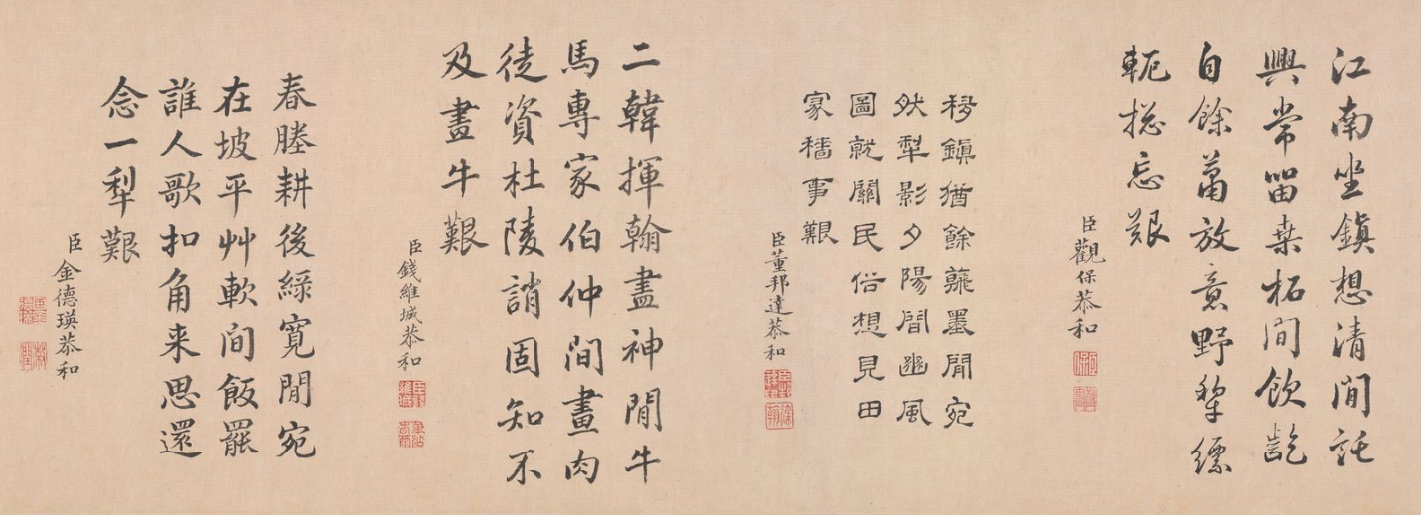 江南坐鎮想清閒託
興常畱桑柘間飲齕
自餘蕭放意野犂縹
軛揔忘艱
臣觀保恭和
移鎮猶餘蘸墨閒宛
然犂影夕陽間豳風
圖就關民俗想見田
家穡事艱
臣董邦達恭和
二韓揮翰盡神閒牛
馬專家伯仲間畫肉
徒資杜陵誚固知不
及畫牛艱
臣錢維城恭和
春塍耕後綠寬閒宛
在坡平艸軟間飯罷
誰人歌扣角来思還
念一犂艱
臣金德瑛恭和